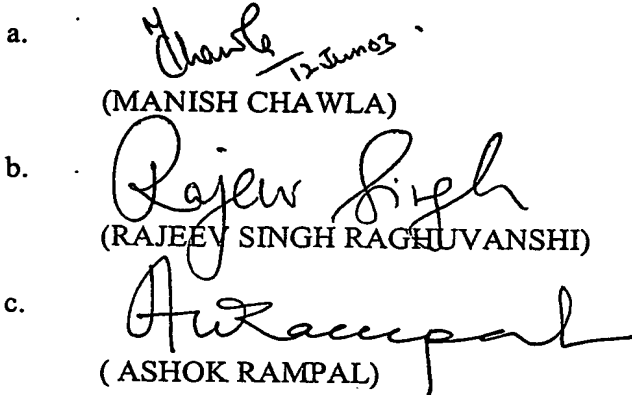 a.
MChawla
12 Jun 03
(MANISH CHAWLA)
b.
Rajeev Singh
(RAJEEV SINGH RAGHUVANSHI)
c.
AKRampal
( ASHOK RAMPAL)